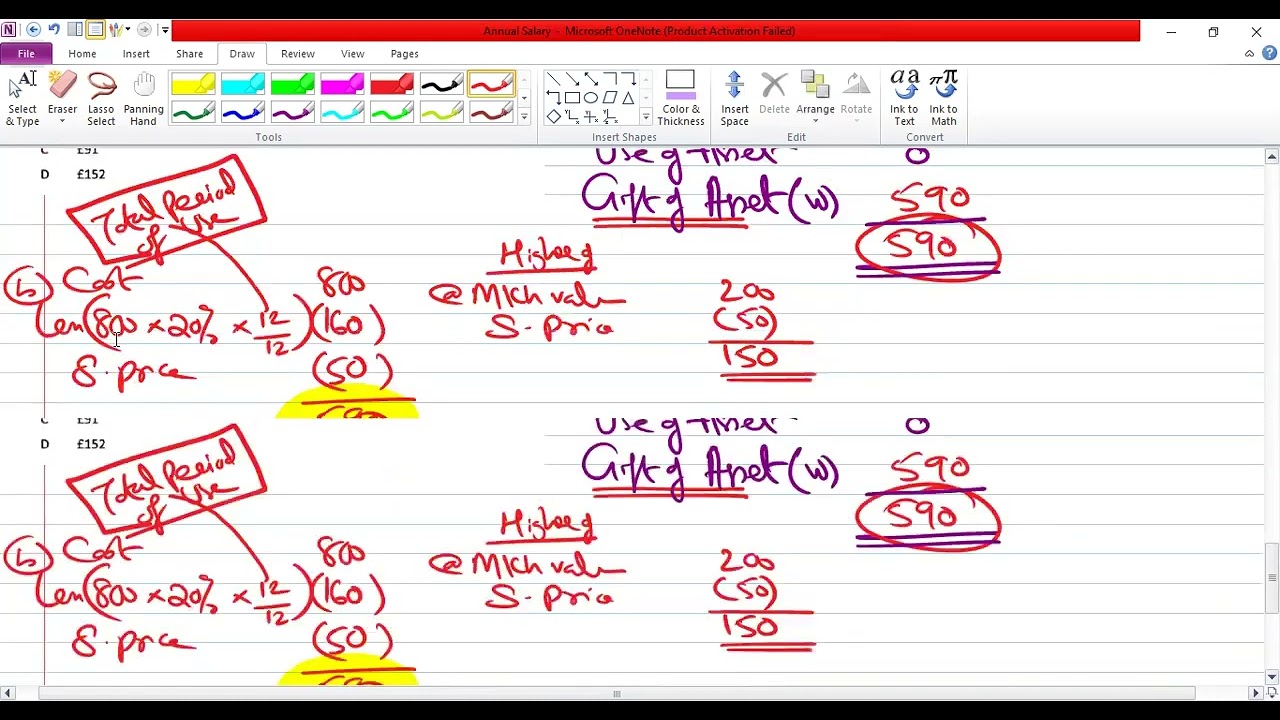 Annual Salary - Microsoft OneNote (Product Activation Failed)
File Home Insert Share Draw Review View Pages
Select & Type
Eraser
Lasso Select
Panning Hand
Color & Thickness
Insert Space
Delete
Arrange
Rotate
Ink to Text
Ink to Math
Tools
Insert Shapes
Edit
Convert
C £91
D £152
Use of Asset 0
Gift of Asset (w) 590
590
Total Period of Use
(b) Cost 800
Less (800 × 20% × 12/12) (160)
S. price (50)
Higher of
(a) Mkt value 200
S. Price (50)
150
C £91
D £152
Use of Asset 0
Gift of Asset (w) 590
590
Total Period of Use
(b) Cost 800
Less (800 × 20% × 12/12) (160)
S. price (50)
Higher of
(a) Mkt value 200
S. Price (50)
150